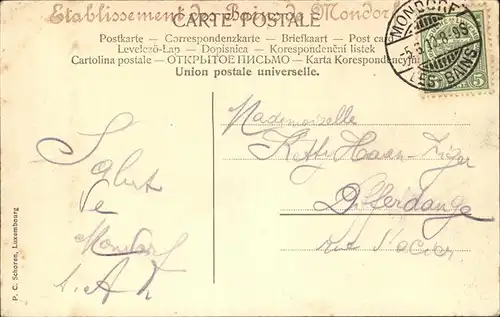 Etablissement des Bains de Mondorf
CARTE POSTALE
Postkarte — Correspondenzkarte — Briefkaart — Post card
Levelező-Lap — Dopisnica — Korespondenční lístek
Cartolina postale — ОТКРЫТОЕ ПИСЬМО — Karta Korespondencyjna
Union postale universelle.
MONDORF
LES BAINS
5 5
Mademoiselle
Ketty Haan-
Differdange
rue
Salut
de
Mondorf
P. C. Schoren, Luxembourg